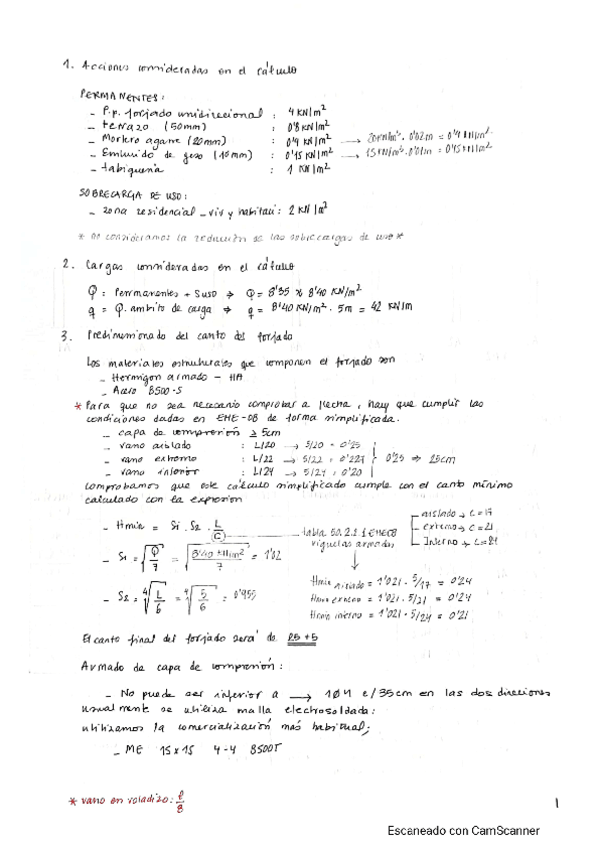 1. Acciones consideradas en el cálculo
PERMANENTES:
- P.p. forjado unidireccional : 4 KN/m²
- terrazo (50mm) : 0'8 KN/m²
- Mortero agarre (20mm) : 0'4 KN/m² → 20KN/m³. 0'02m = 0'4 KN/m²
- Enlucido de yeso (10mm) : 0'15 KN/m² → 15KN/m³. 0'01m = 0'15 KN/m²
- tabiquería : 1 KN/m²
SOBRECARGA DE USO:
- zona residencial - viv y habitaci: 2 KN/m²
* no consideramos la reducción de las sobrecargas de uso *
2. Cargas consideradas en el cálculo
Q = Permanentes + Suso ⇒ Q = 8'35 ≈ 8'40 KN/m²
q = Q. ambito de carga ⇒ q = 8'40 KN/m². 5m = 42 KN/m
3. Predimensionado del canto del forjado
Los materiales estructurales que componen el forjado son
- Hormigon armado - HA
- Acero B500-S
* Para que no sea necesario comprobar a flecha, hay que cumplir las
condiciones dadas en EHE-08 de forma simplificada.
- capa de compresión ≥ 5cm
- vano aislado : L/20 → 5/20 = 0'25
- vano extremo : L/22 → 5/22 = 0'227 0'25 ⇒ 25cm
- vano interior : L/24 → 5/24 = 0'20
comprobamos que este cálculo simplificado cumple con el canto mínimo
calculado con la expresión
- Hmin = S1 . S2 . L/C tabla 50.2.2.1 EHE08 viguetas armadas
aislado → C = 17
extremo → C = 21
Interno → C = 24
- S1 = √Q/7 = √8'40 KN/m²/7 = 1'02
- S2 = ⁴√L/6 = ⁴√5/6 = 0'955
Hmin aislado = 1'021 . 5/17 = 0'24
Hmin extremo = 1'021 . 5/21 = 0'24
Hmin interno = 1'021 . 5/24 = 0'21
El canto final del forjado será de 25+5
Armado de capa de compresión:
- No puede ser inferior a → 1Ø4 c/35cm en las dos direciones
usualmente se utiliza malla electrosoldada:
utilizamos la comercialización más habitual;
- ME 15x15 4-4 B500T
* vano en voladizo: l/8
1
Escaneado con CamScanner